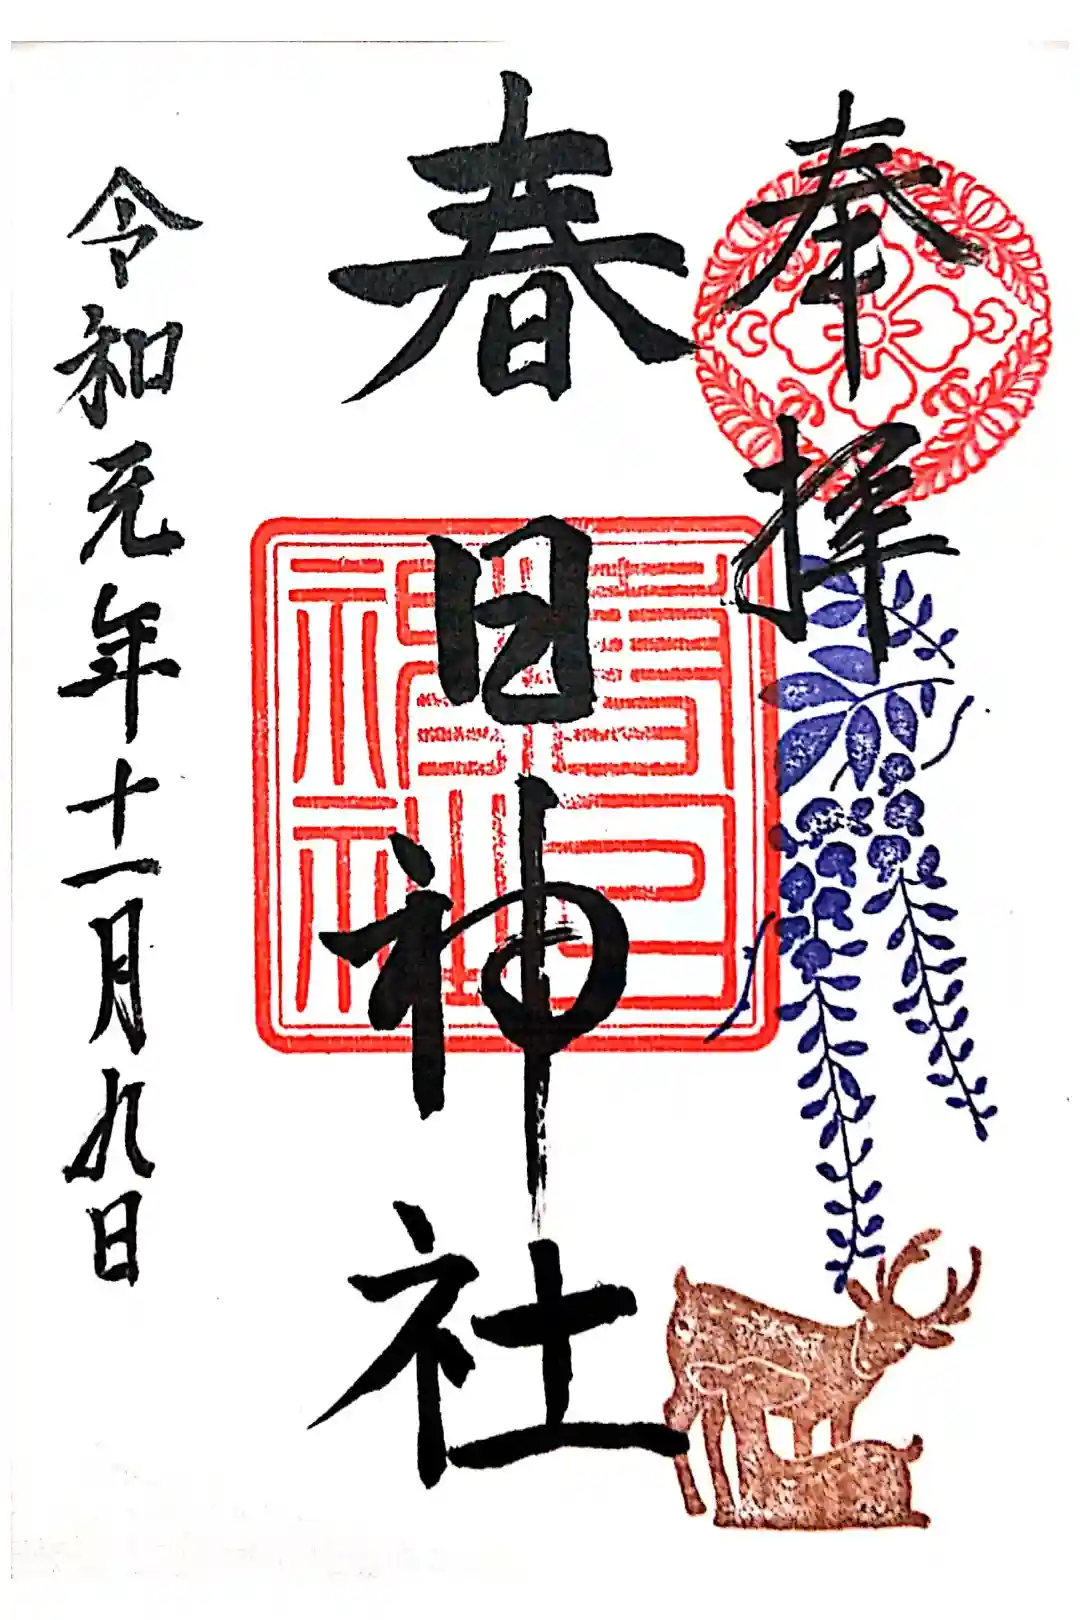 奉拝
春日神社
春日神社
令和元年十一月九日